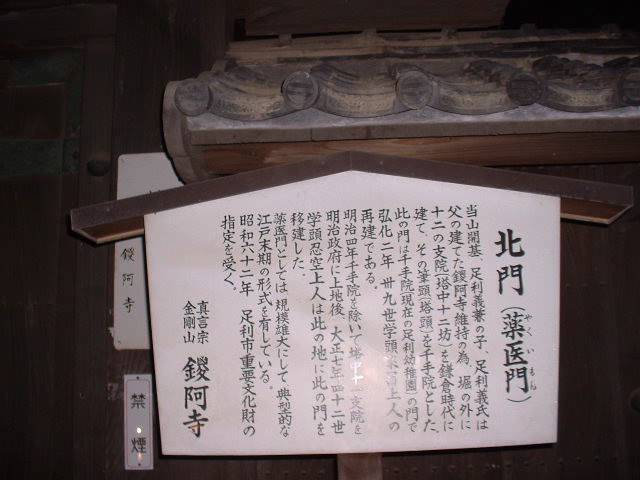 北門(薬医門)
やくいもん
当山開基、足利義兼の子、足利義氏は
父の建てた鑁阿寺維持の為、堀の外に
十二の支院(塔中十二坊)を鎌倉時代に
建て、その筆頭(塔頭)を千手院とした、
此の門は千手院(現在の足利幼稚園)の門で
弘化二年 卅九世学頭 上人の
再建である。
明治四年千手院を除いて塔中十一支院を
明治政府に上地後、大正七年四十二世
学頭忍空上人は此の地に此の門を
移建した。
薬医門としては、規模雄大にして、典型的な
江戸末期の形式を有している。
昭和六十二年 足利市重要文化財の
指定を受く。
真言宗
金剛山 鑁阿寺
鑁阿寺
禁煙